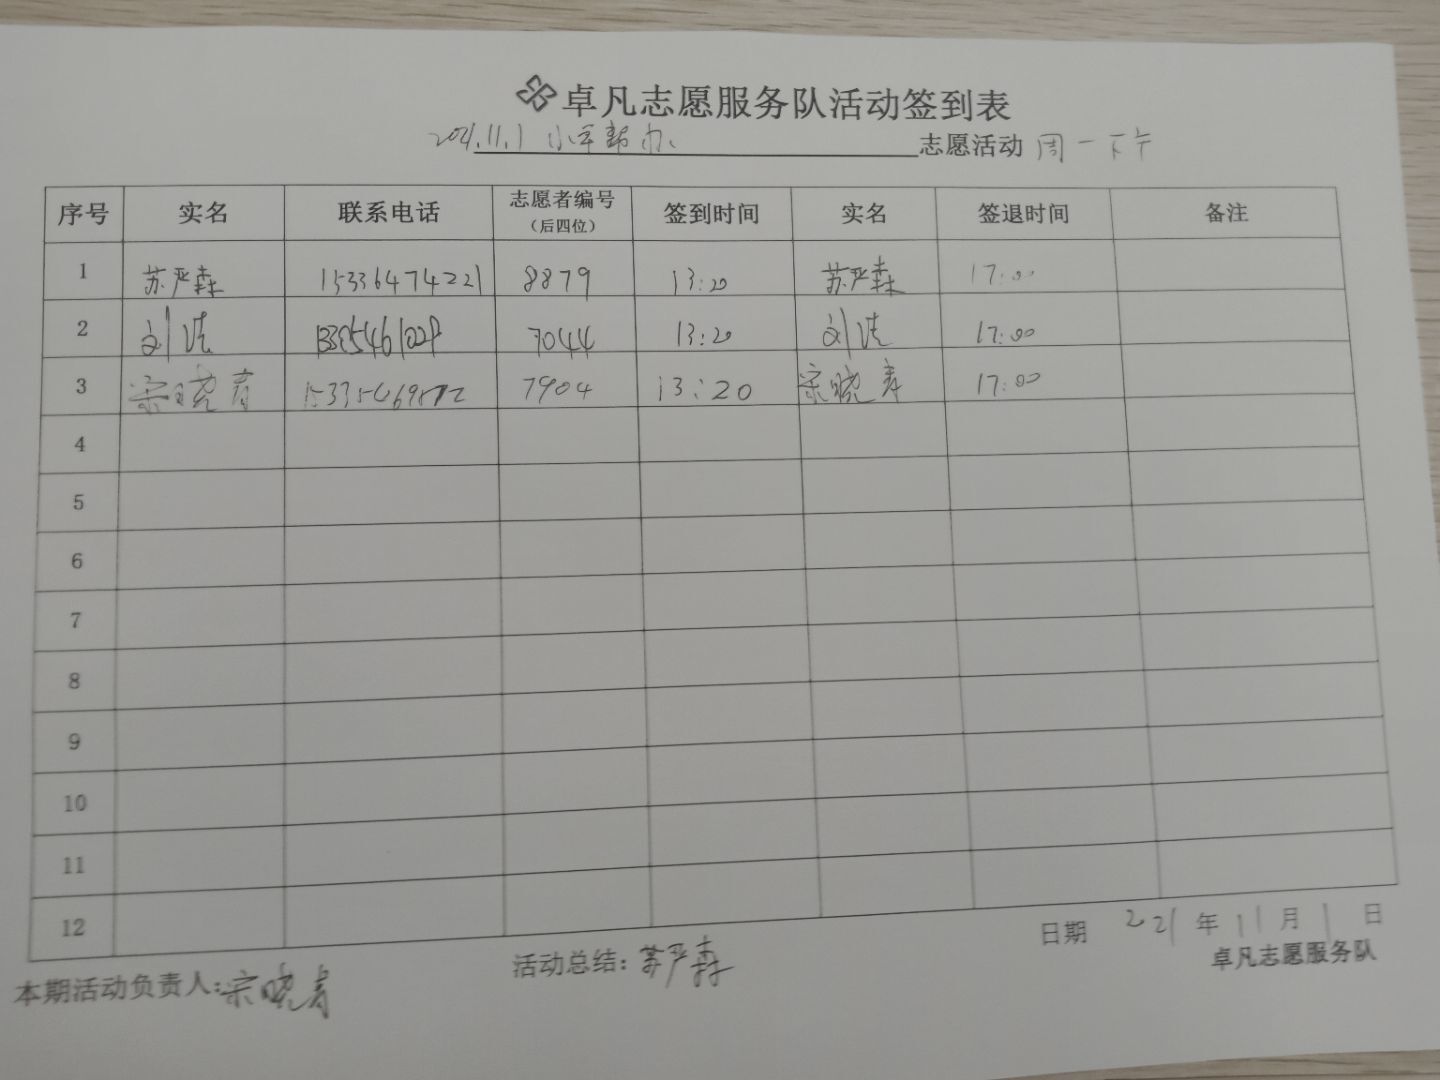 卓凡志愿服务队活动签到表
2021.11.1 小军帮办 志愿活动 周一下午
序号 实名 联系电话 志愿者编号（后四位） 签到时间 实名 签退时间 备注
1 苏严森 15336474221 8879 13:20 苏严森 17:00
2 刘 7044 13:20 刘 17:00
3 宗晓春 7904 13:20 宗晓春 17:00
4
5
6
7
8
9
10
11
12
本期活动负责人:宗晓春 活动总结:苏严森 日期 221年11月1日
卓凡志愿服务队